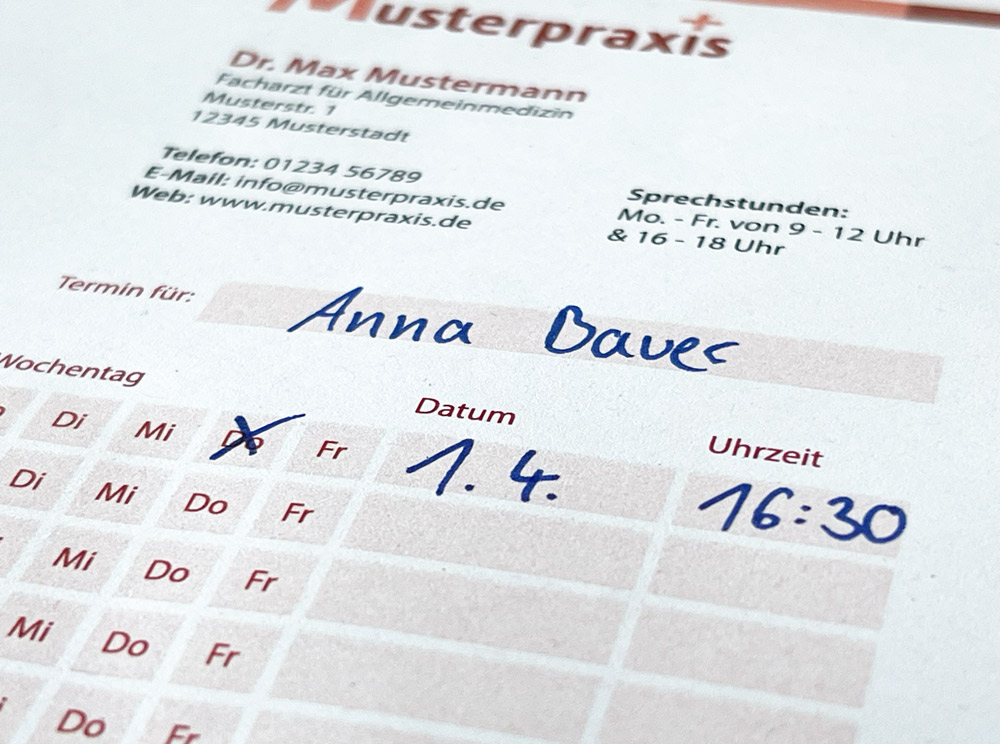 Musterpraxis
Dr. Max Mustermann
Facharzt für Allgemeinmedizin
Musterstr. 1
12345 Musterstadt
Telefon: 01234 56789
E-Mail: info@musterpraxis.de
Web: www.musterpraxis.de
Sprechstunden:
Mo. - Fr. von 9 - 12 Uhr
& 16 - 18 Uhr
Termin für: Anna Bauer
Wochentag Datum Uhrzeit
Di Mi Do Fr 1. 4. 16:30
Di Mi Do Fr
Mi Do Fr
Mi Do Fr
Do Fr